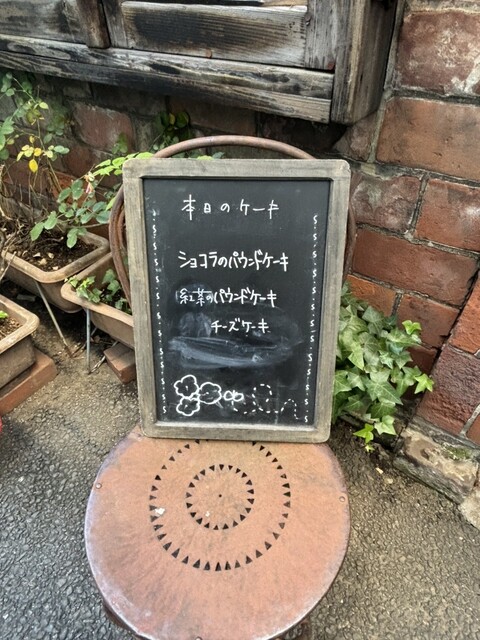 本日のケーキ
ショコラのパウンドケーキ
紅茶のパウンドケーキ
チーズケーキ